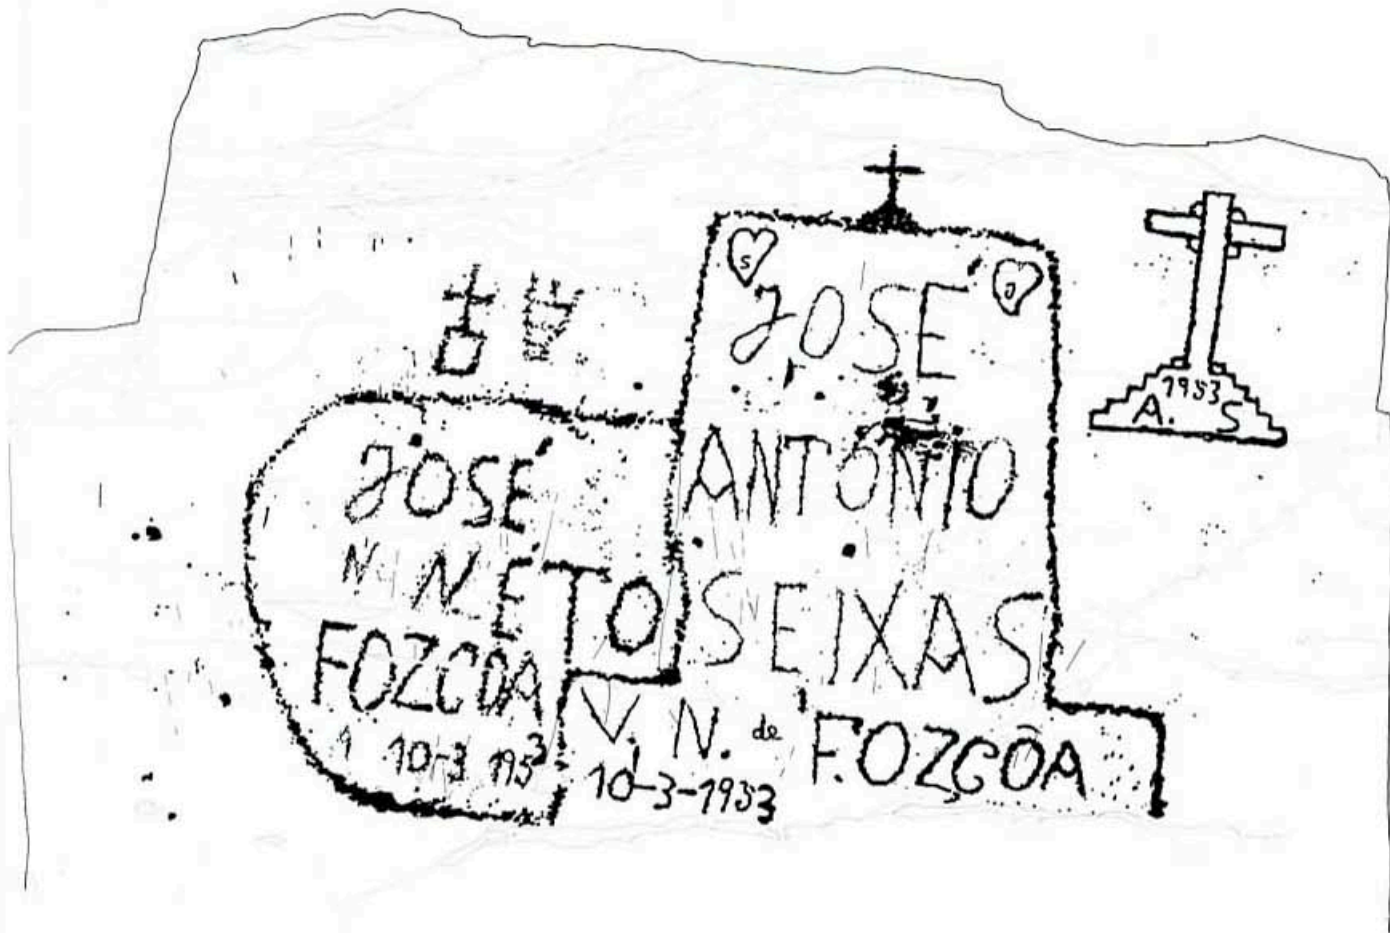 JOSÉ
N NETO
FOZCOA
1 10-3 1953
S
J
JOSÉ
ANTÓNIO
SEIXAS
V. N. de F.OZCÔA
10-3-1953
1953
A. S